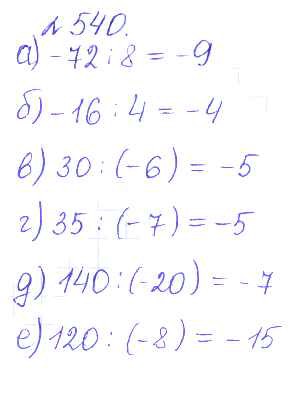 № 540.
а) -72 : 8 = -9
б) -16 : 4 = -4
в) 30 : (-6) = -5
г) 35 : (-7) = -5
д) 140 : (-20) = -7
е) 120 : (-8) = -15